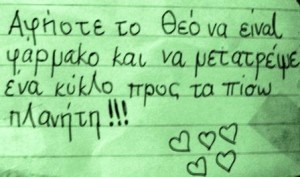 Αφήστε το Θεό να είναι
φάρμακο και να μετατρέψε
ένα κύκλο προς τα πίσω
πλανήτη!!!